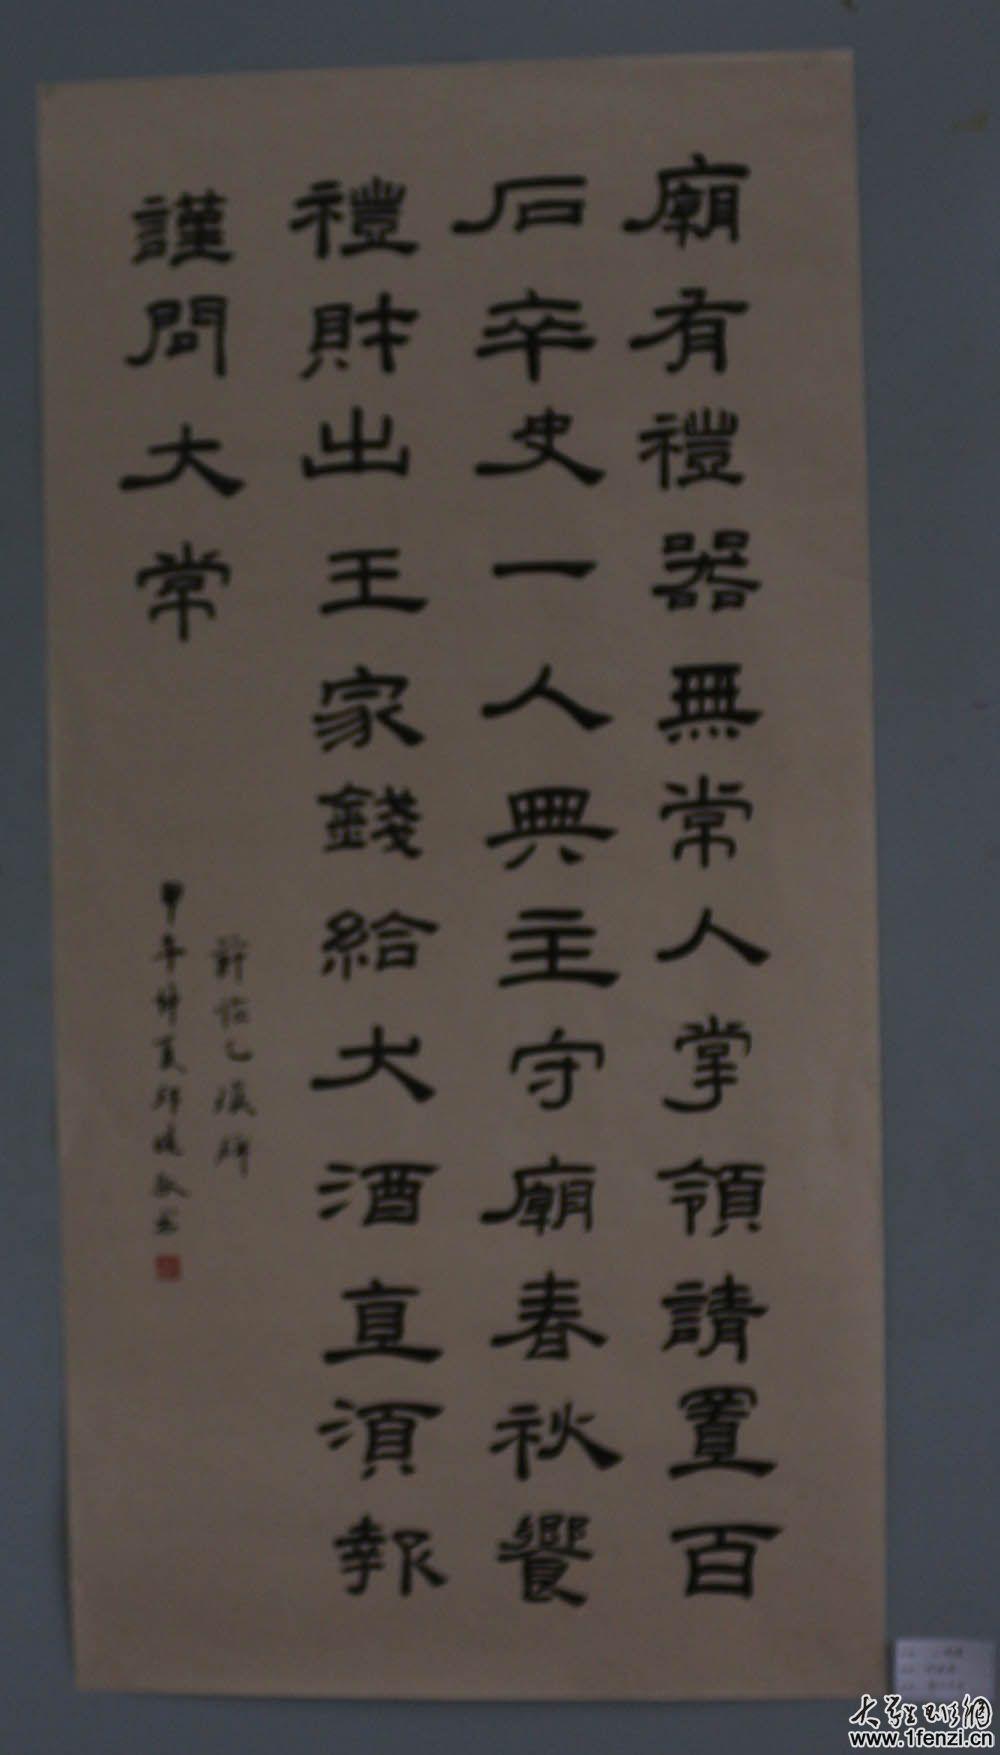 廟有禮器無常人掌領請置百
石卒史一人典主守廟春秋饗
禮財出王家錢給犬酒直須報
謹問大常
乙瑛碑
甲午
大學班網
www.1fenzi.cn